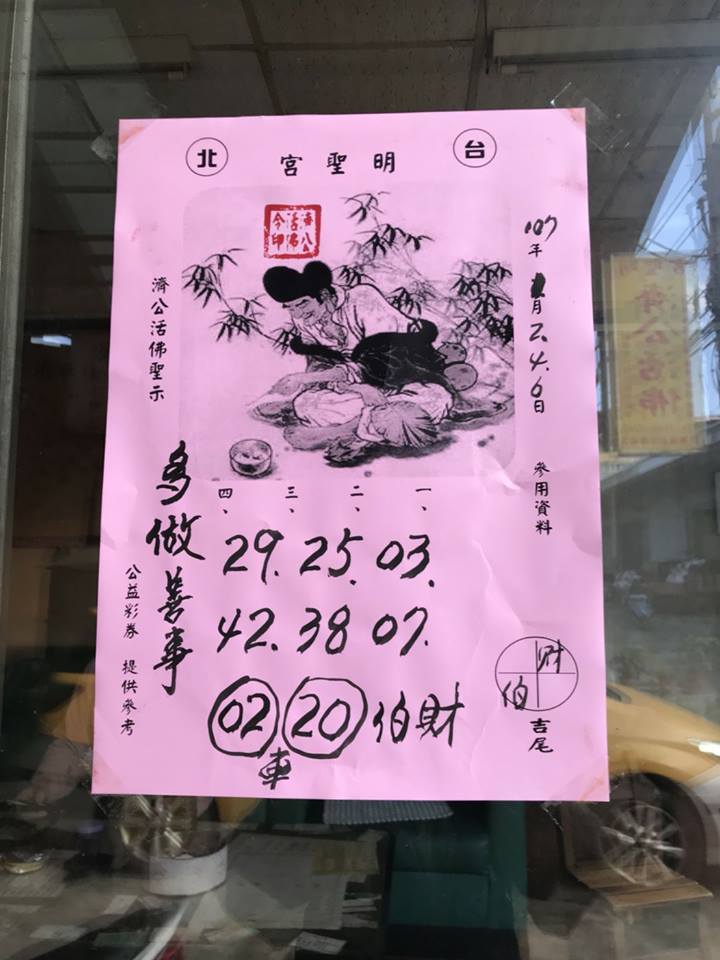 台 明聖宮 北
濟公
活佛
印
107年 月2.4.6日 參用資料
濟公活佛聖示
一、 二、 三、 四、
29. 25. 03.
42. 38 07.
02 20 伯財
車
多做善事
公益彩券 提供參考
財
伯
吉尾
濟公活佛